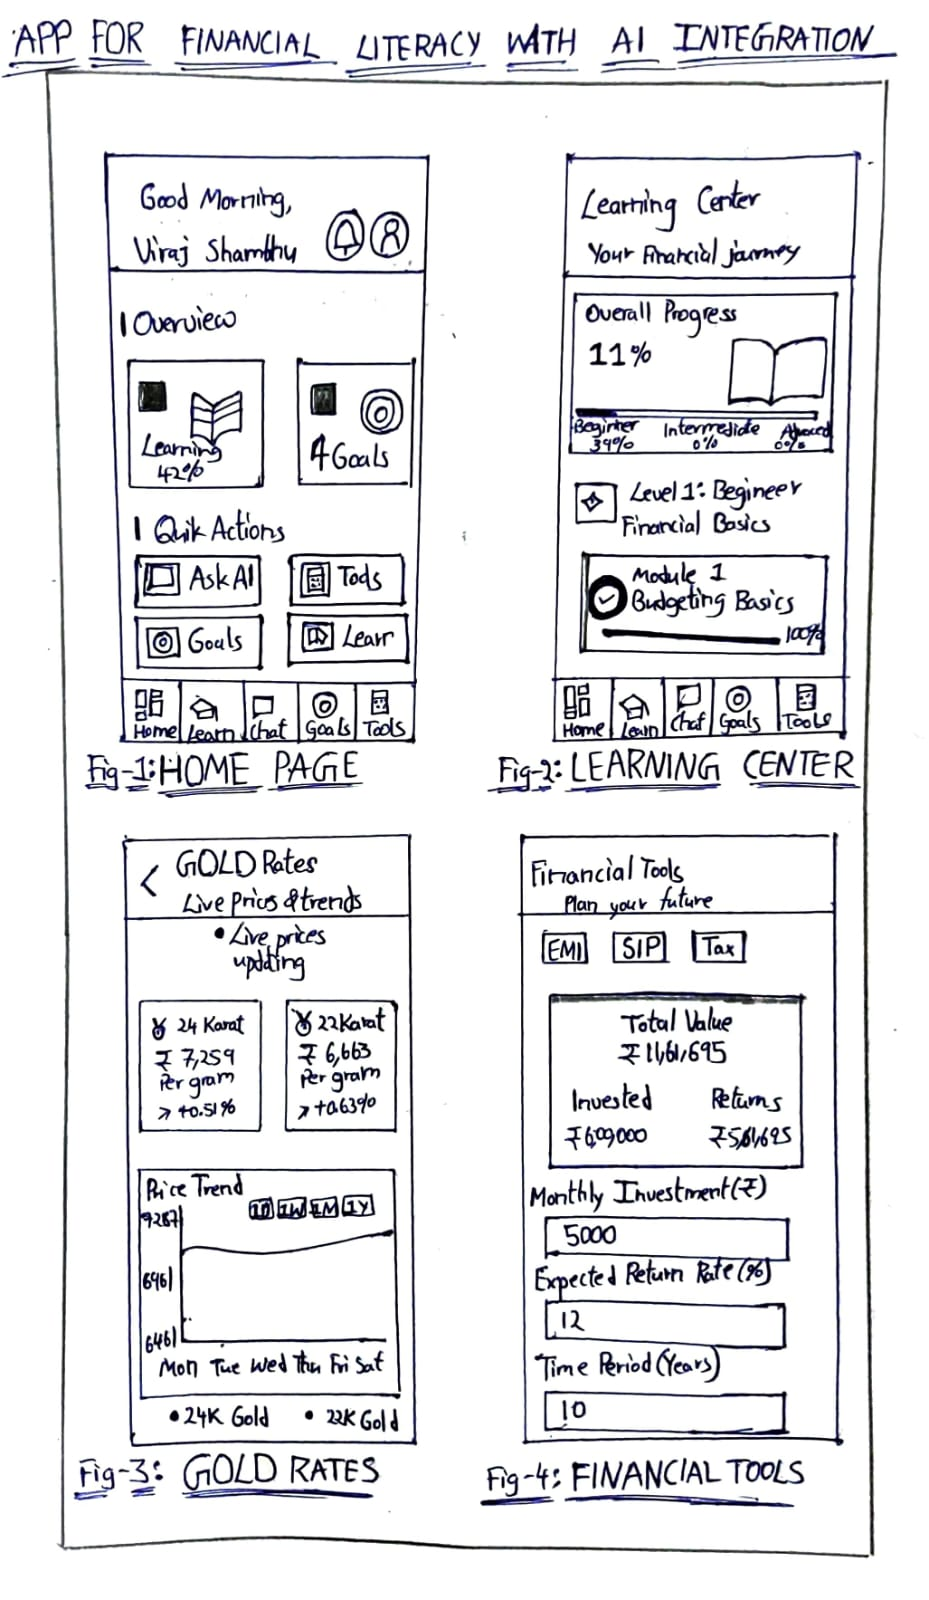 APP FOR FINANCIAL LITERACY WITH AI INTEGRATION
Good Morning,
Viraj Shambhu
Overview
Learning
42%
4 Goals
Quik Actions
Ask AI
Tools
Goals
Learn
Home Learn Chat Goals Tools
Fig-1: HOME PAGE
Learning Center
Your Financial journey
Overall Progress
11%
Beginner Intermediate Advanced
34% 0% 0%
Level 1: Begineer
Financial Basics
Module 1
Budgeting Basics
100%
Home Learn Chat Goals Tools
Fig-2: LEARNING CENTER
< GOLD Rates
Live Prices & trends
• Live prices
updting
24 Karat
₹ 7,259
Per gram
↗ +0.51%
22 Karat
₹ 6,663
Per gram
↗ +0.63%
Price Trend
1D 1W 1M 1Y
9287
6961
6461
Mon Tue Wed Thu Fri Sat
• 24K Gold • 22K Gold
Fig-3: GOLD RATES
Financial Tools
Plan your future
EMI SIP Tax
Total Value
₹ 11,61,695
Invested Returns
₹ 6,00,000 ₹ 5,61,695
Monthly Investment (₹)
5000
Expected Return Rate (%)
12
Time Period (Years)
10
Fig-4: FINANCIAL TOOLS